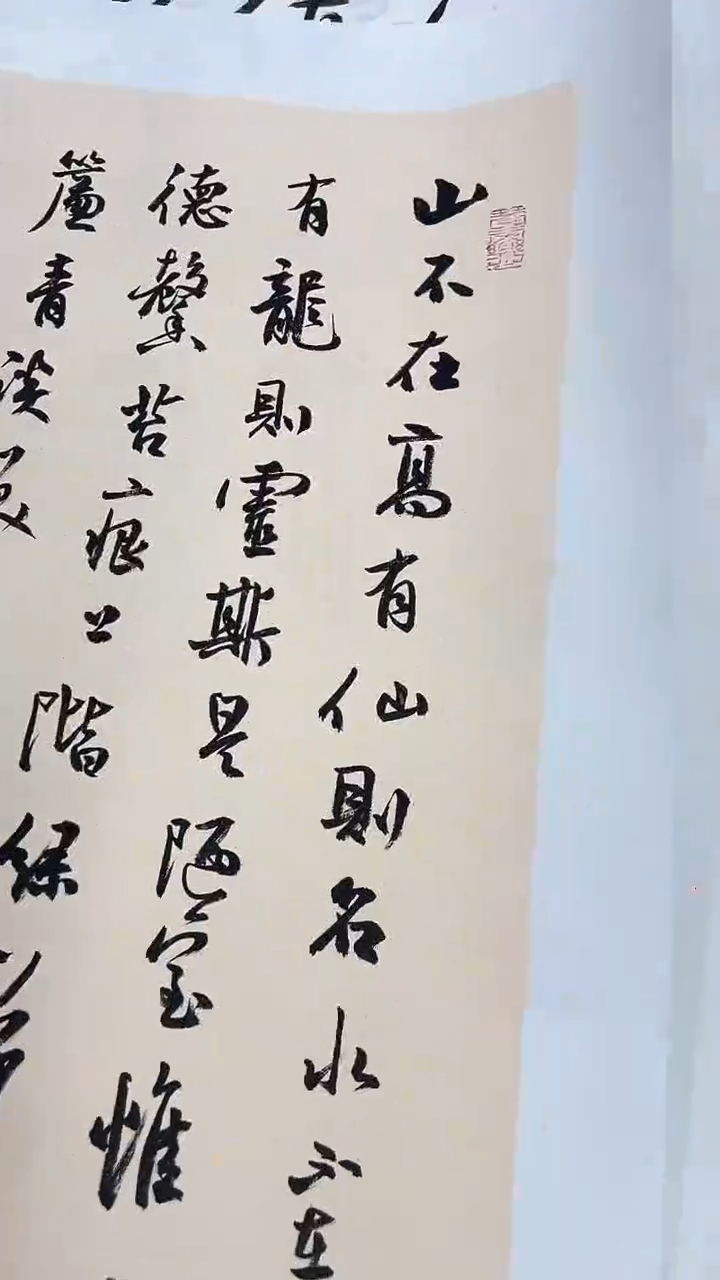 山不在高有仙則名水不在
有龍則靈斯是陋室惟
德馨苔痕上階綠
簾青談